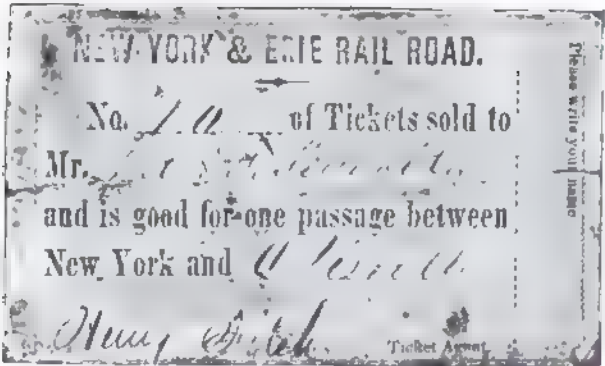 NEW YORK & ERIE RAIL ROAD.
No. of Tickets sold to
Mr.
and is good for one passage between
New York and
Henry
Ticket Agent
Please write your name